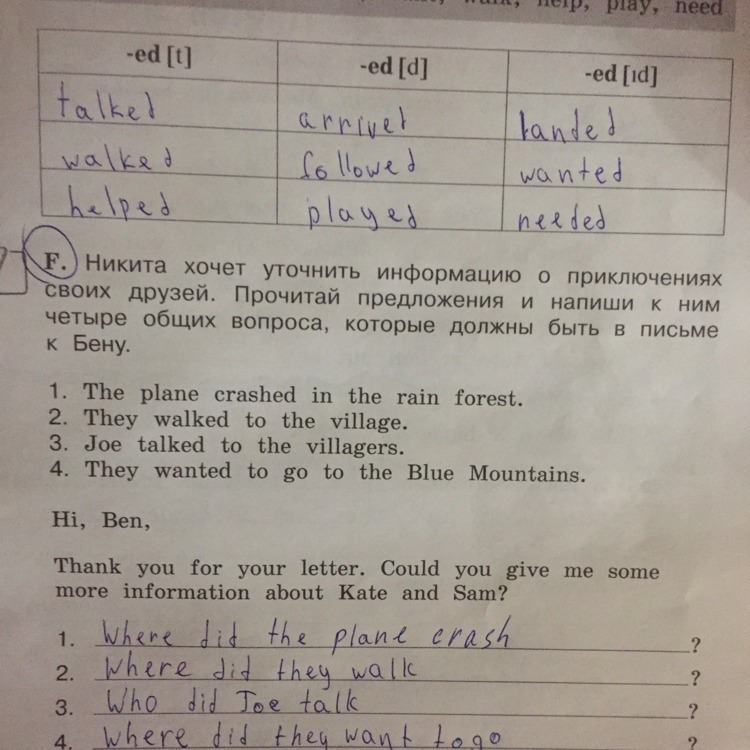 help, play, need
-ed [t] -ed [d] -ed [ɪd]
talked arrived landed
walked followed wanted
helped played needed
F. Никита хочет уточнить информацию о приключениях
своих друзей. Прочитай предложения и напиши к ним
четыре общих вопроса, которые должны быть в письме
к Бену.
1. The plane crashed in the rain forest.
2. They walked to the village.
3. Joe talked to the villagers.
4. They wanted to go to the Blue Mountains.
Hi, Ben,
Thank you for your letter. Could you give me some
more information about Kate and Sam?
1. Where did the plane crash ?
2. Where did they walk ?
3. Who did Joe talk ?
4. Where did they want to go ?